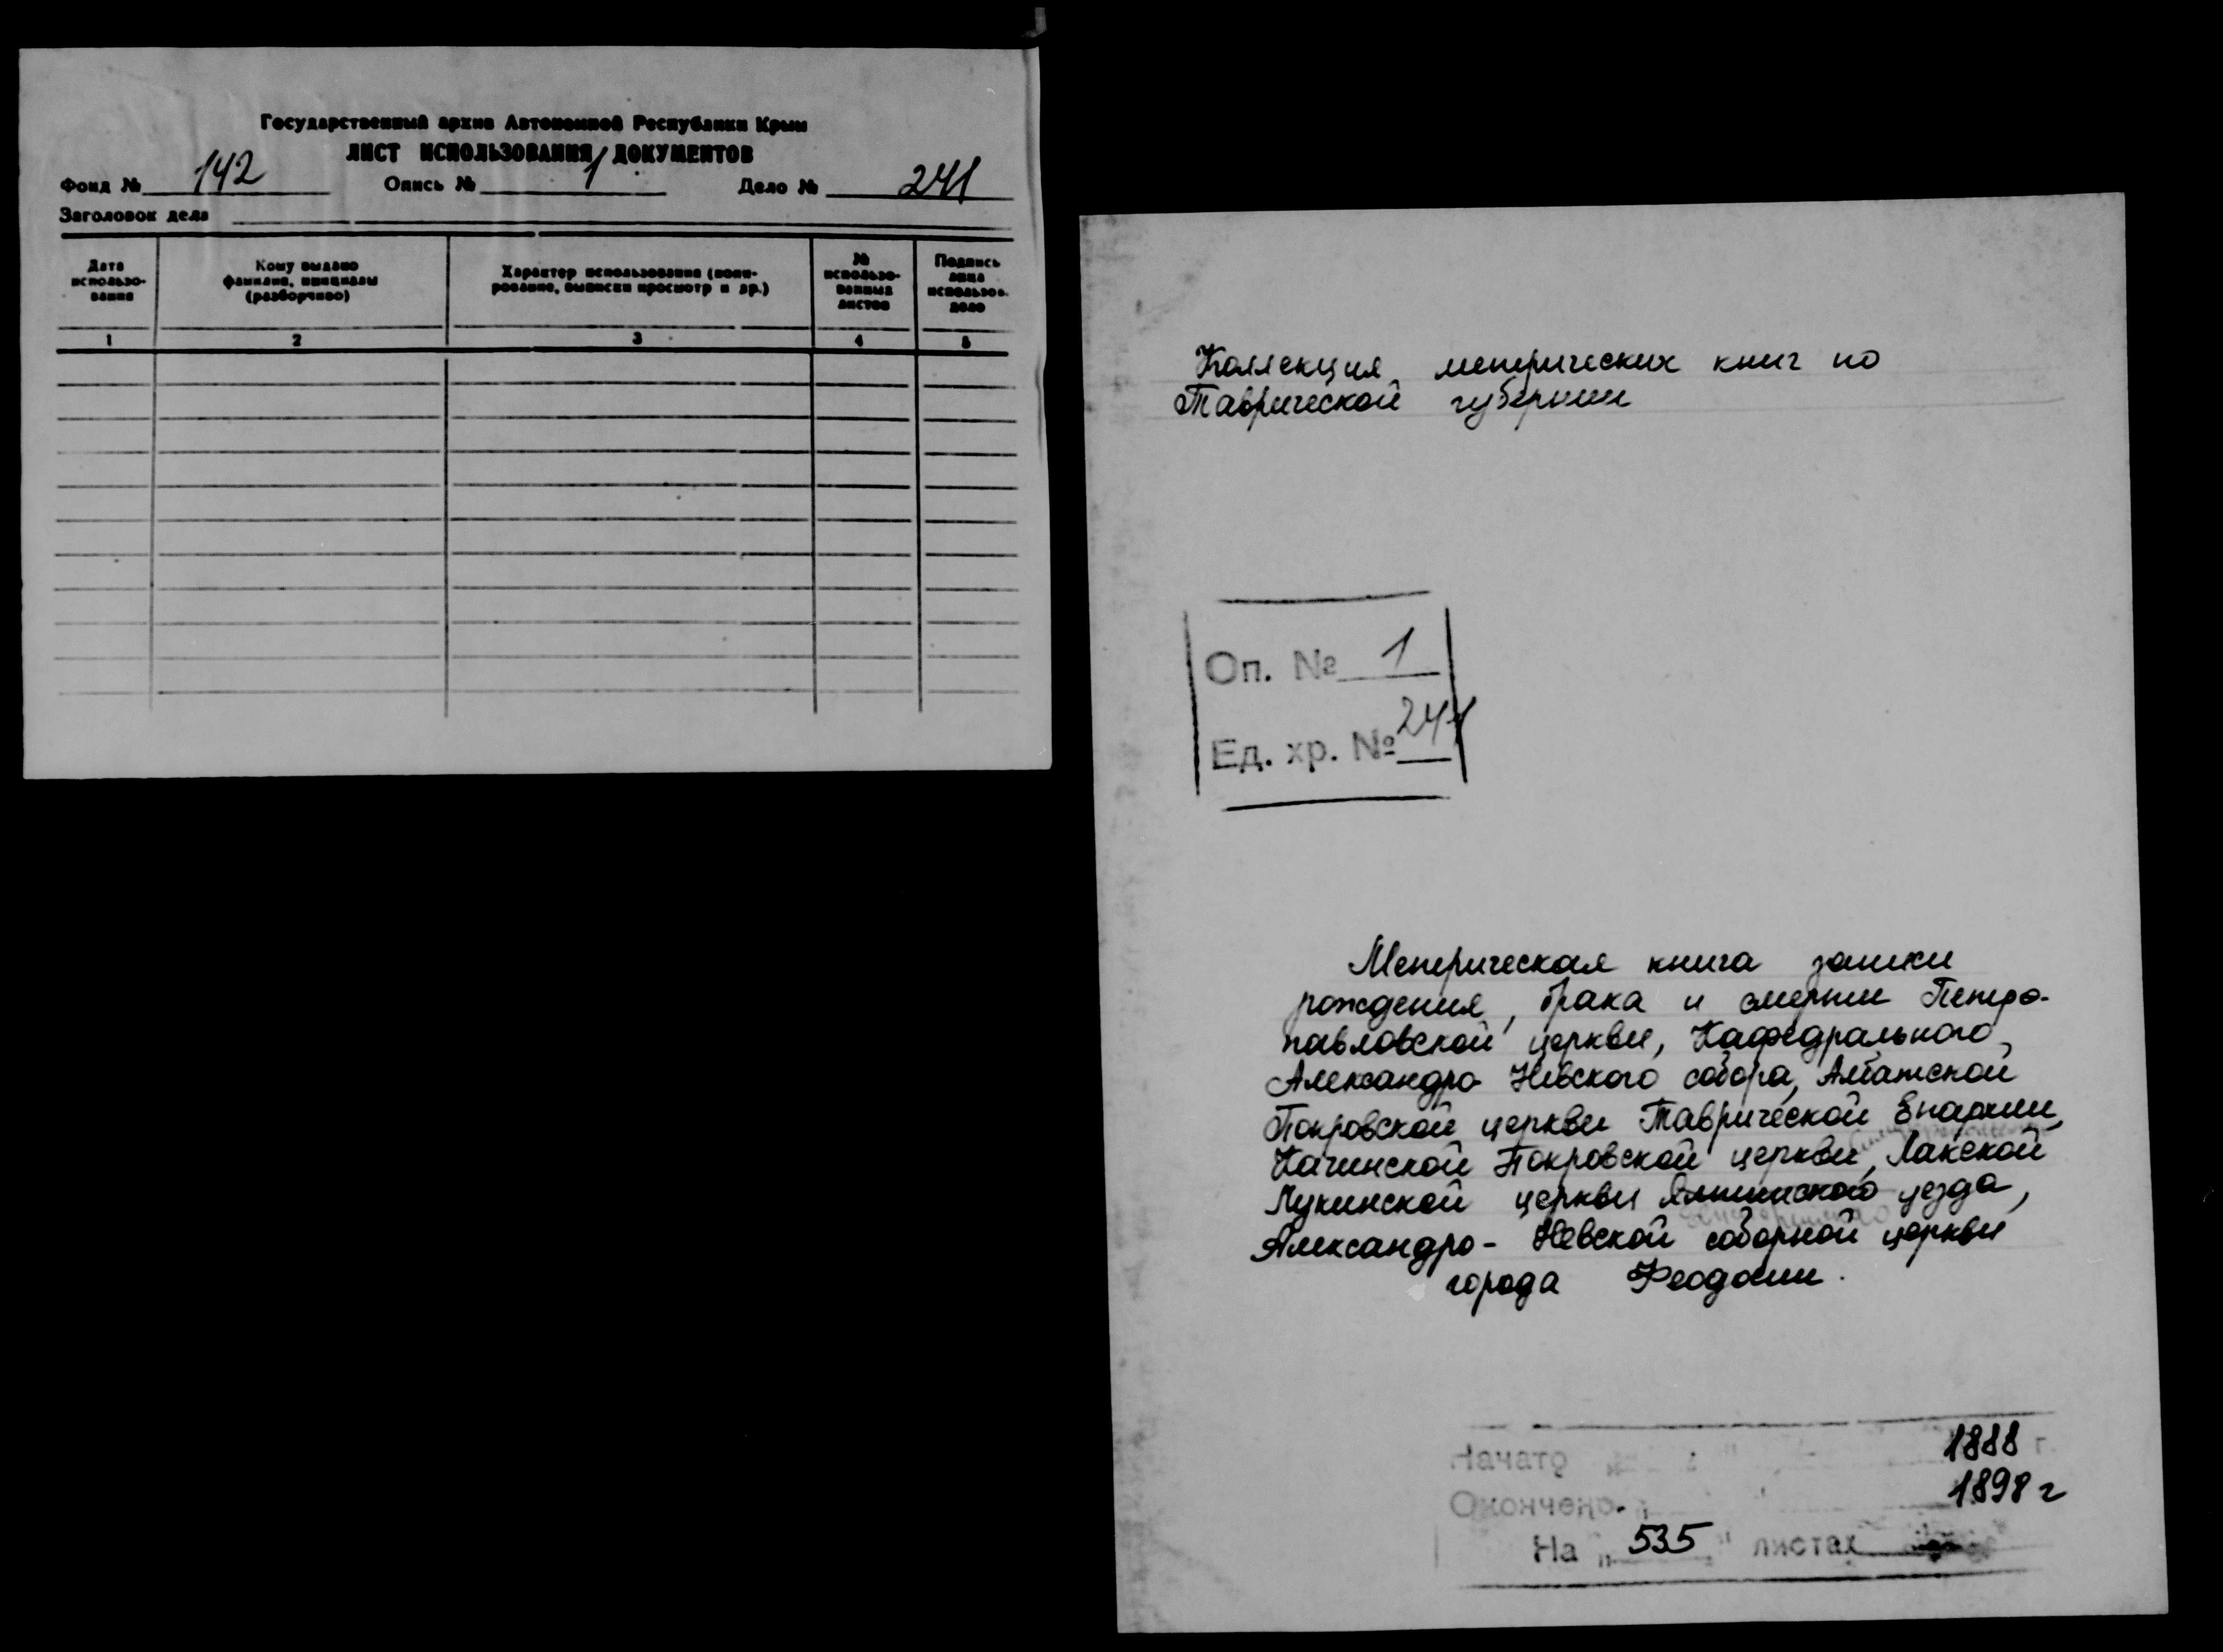 Государственный архив Автономной Республики Крым
ЛИСТ ИСПОЛЬЗОВАНИЯ ДОКУМЕНТОВ
Фонд № 142 Опись № 1 Дело № 241
Заголовок дела
Дата использо-вания
Кому выдано фамилия, инициалы (разборчиво)
Характер использования (копи-рование, выписки просмотр и др.)
№ использо-ванных листов
Подпись лица использов. дело
1 2 3 4 5
Коллекция метрических книг по
Таврической губернии
Оп. № 1
Ед. хр. № 241
Метрическая книга записи
рождения, брака и смерти Петро-
павловской церкви, Кафедрального
Александро Невского собора, Албатской
Покровской церкви Таврической Епархии,
Качинской Покровской церкви, Лакской
Лукинской церкви Ялтинского уезда,
Александро-Невской соборной церкви
города Феодосии.
Начато 1888 г.
Окончено 1898 г
На „535" листах